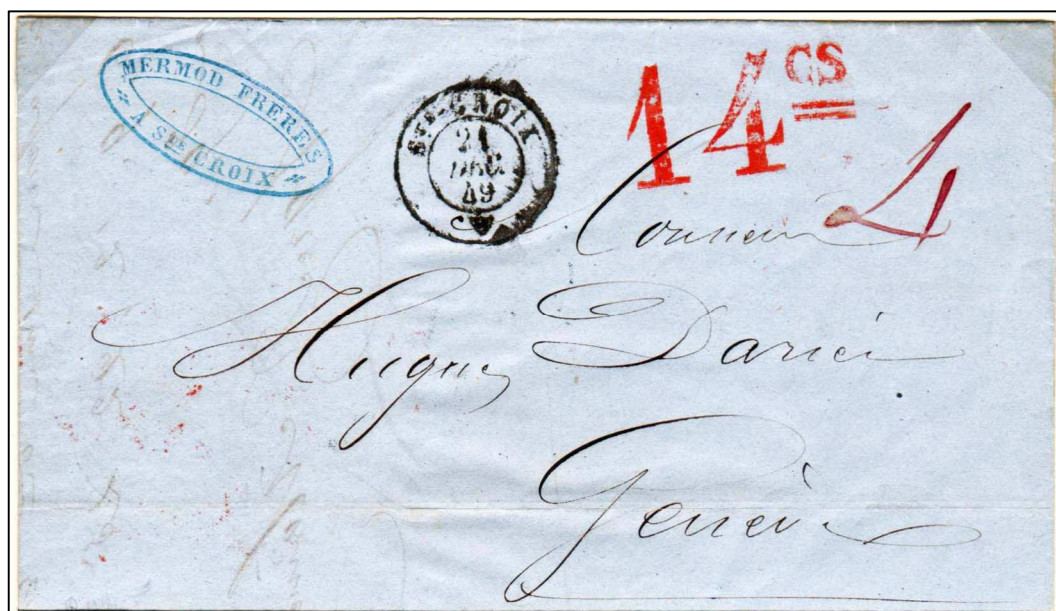 MERMOD FRERES
A STE CROIX
STE CROIX
21
DEC.
49
14 CS
4
Monsieur
Hugues Darier
Genève